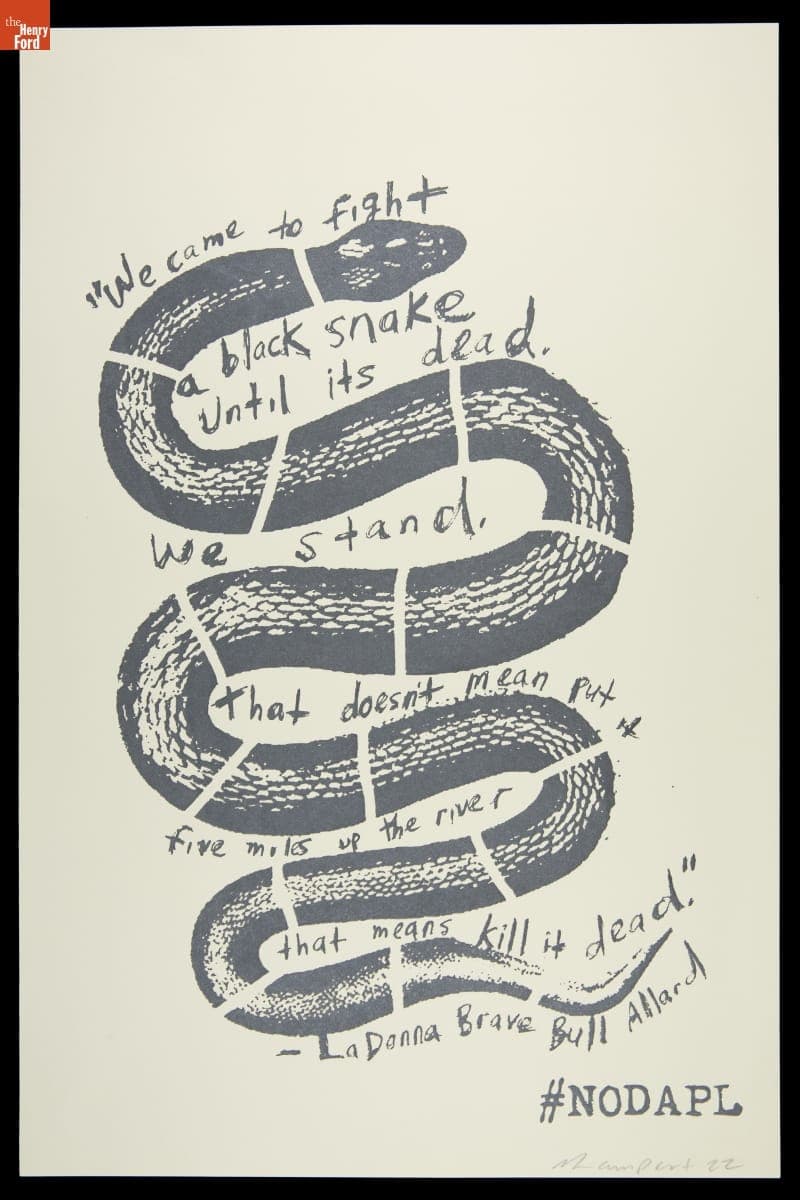 the
Henry
Ford
"We came to fight
a black snake
until its dead.
We stand.
that doesn't mean put
it
five miles up the river
that means kill it dead."
- LaDonna Brave Bull Allard
#NODAPL
22